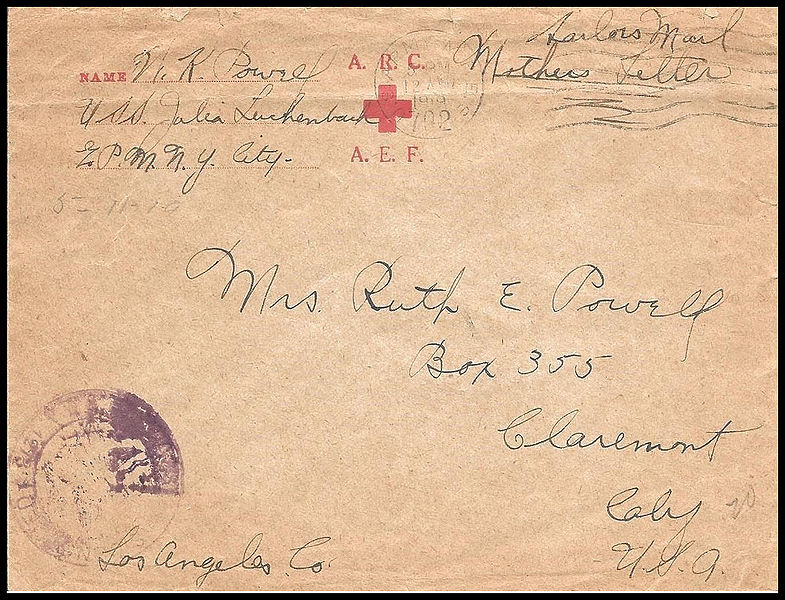 Sailors Mail
Mothers Letter
NAME W. K. Powell
A. R. C.
USS. Julia Luckenbach
A. E. F.
P. M. N. Y. City.
702
5-11-18
Mrs. Ruth E. Powell
Box 355
Claremont
Caly
U.S.A.
Los Angeles Co.